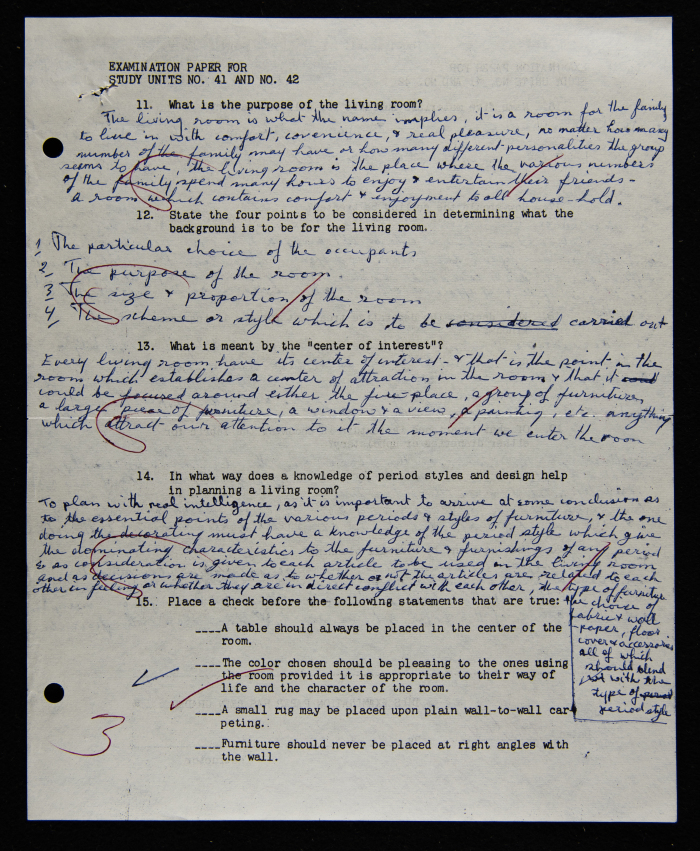 EXAMINATION PAPER FOR
STUDY UNITS NO. 41 AND NO. 42
11. What is the purpose of the living room?
The living room is what the name implies, it is a room for the family
to live in with comfort, covenience, & real pleasure, no matter how many
number of the family may have or how many different personalities the group
seems to have, the living room is the place where the various numbers
of the family spend many hours to enjoy & entertain their friends -
a room which contains comfort & enjoyment to all house-hold.
12. State the four points to be considered in determining what the
background is to be for the living room.
1 The particular choice of the occupants
2 The purpose of the room.
3 The size & proportion of the room
4 The scheme or style which is to be considered carried out
13. What is meant by the "center of interest"?
Every living room have its center of interest - & that is the point in the
room which establishes a center of attraction in the room & that it
could be focused around either the fire place, a group of furniture,
a large piece of furniture, a window & a view, a painting, etc. anything
which attract our attention to it the moment we enter the room
14. In what way does a knowledge of period styles and design help
in planning a living room?
To plan with real intelligence, as it is important to arrive at some conclusion as
to the essential points of the various periods & styles of furniture, & the one
doing the decorating must have a knowledge of the period style which give
the dominating characteristics to the furniture & furnishings of any period
& as consideration is given to each article to be used in the living room
and as decisions are made as to whether or not the articles are related to each
other in feeling or whether they are in direct conflict with each other, the type of furniture
15. Place a check before the following statements that are true:
the choice of
fabric & wall
paper, floor
cover & accessories
all of which
should blend
with the
type of period
period style
____A table should always be placed in the center of the
room.
____The color chosen should be pleasing to the ones using
the room provided it is appropriate to their way of
life and the character of the room.
____A small rug may be placed upon plain wall-to-wall car
peting.
____Furniture should never be placed at right angles with
the wall.
3